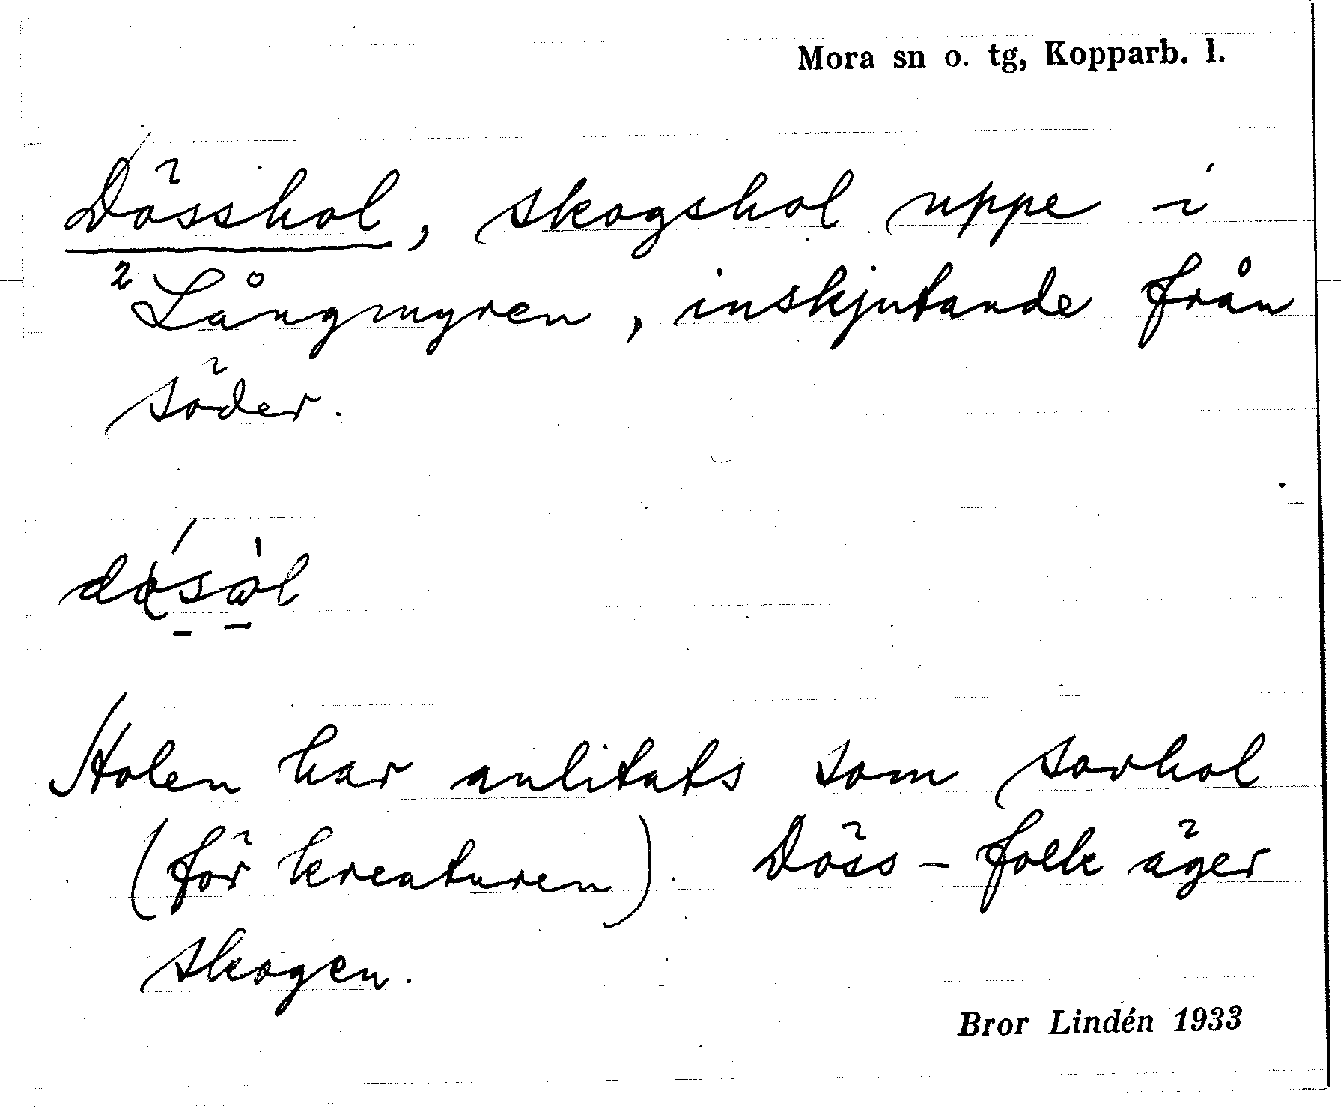 Mora sn o. tg, Kopparb. l.
Dösshol, skogshol uppe i
²Långmyren, inskjutande från
söder.
Holen har anlitats som sovhol
(för kreaturen). Döss-folk äger
skogen.
Bror Lindén 1933